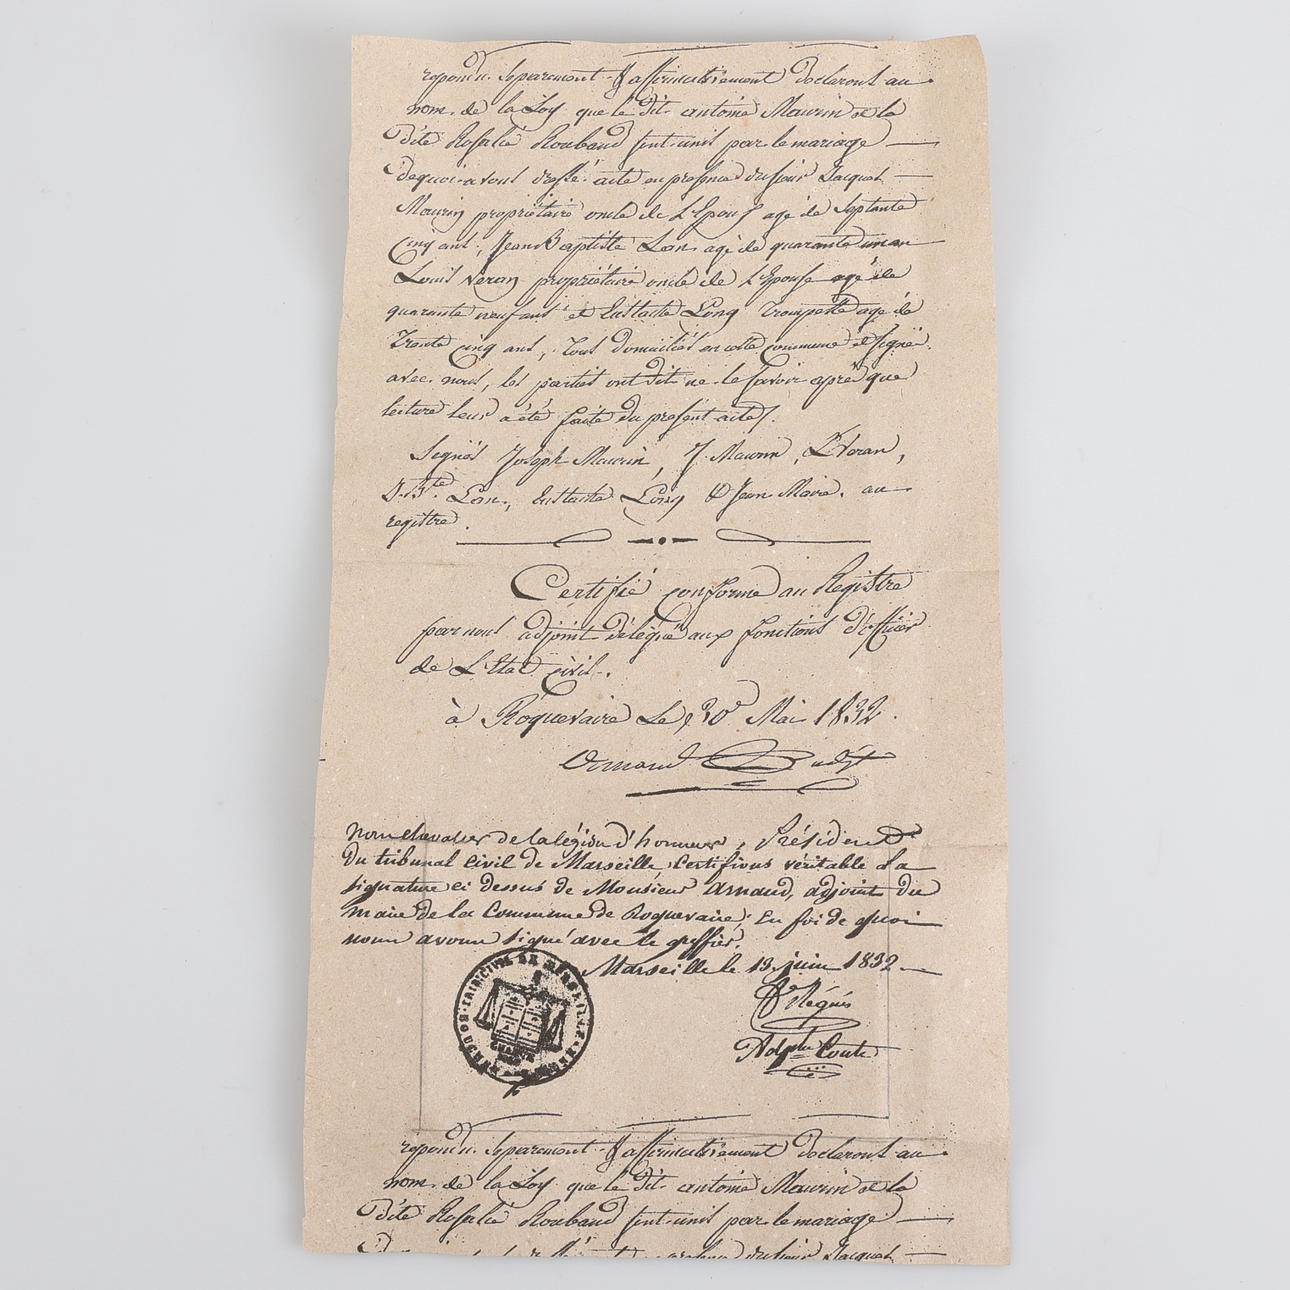 repondu separement & affirmativement declarons au
nom de la Loy que le dit antoine Maurin et la
dite Rosalie Roubaud sont unis par le mariage
de quoi avons dressé acte en presence du sieur Jacques
Maurin propriétaire oncle de L'Epoux agé de septante
Cinq ans, Jean Baptiste Lon agé de quarante un an
Louis Veran propriétaire oncle de L'Epouse agé de
quarante neuf ans et Eustache Long Trompette agé de
Trente cinq ans, Tous domiciliés en cette commune et signés
avec nous, les parties ont dit ne le savoir après que
lecture leur a été faite du présent acte.
Signés Joseph Maurin, J. Maurin, L. Veran,
J. Bte. Lon, Eustache Long & Jean Maire. au
registre.
Certifié conforme au Registre
par nous adjoint délégué aux fonctions d'officier
de L'Etat civil.
à Roquevaire Le 30 Mai 1832.
Arnaud adjt
Nous chevalier de la légion d'honneur, Président
Du tribunal Civil de Marseille, Certifions véritable La
signature ci dessus de Monsieur Arnaud, adjoint Du
maire de la Commune de Roquevaire; En foi de quoi
nous avons signé avec le greffier.
Marseille le 13 juin 1832
Réguis
Adolphe Coute
TRIB. CIVIL DE MARSEILLE
BOUCHES
repondu separement & affirmativement declarons au
nom de la Loy que le dit antoine Maurin et la
dite Rosalie Roubaud sont unis par le mariage
acte en presence du sieur Jacques